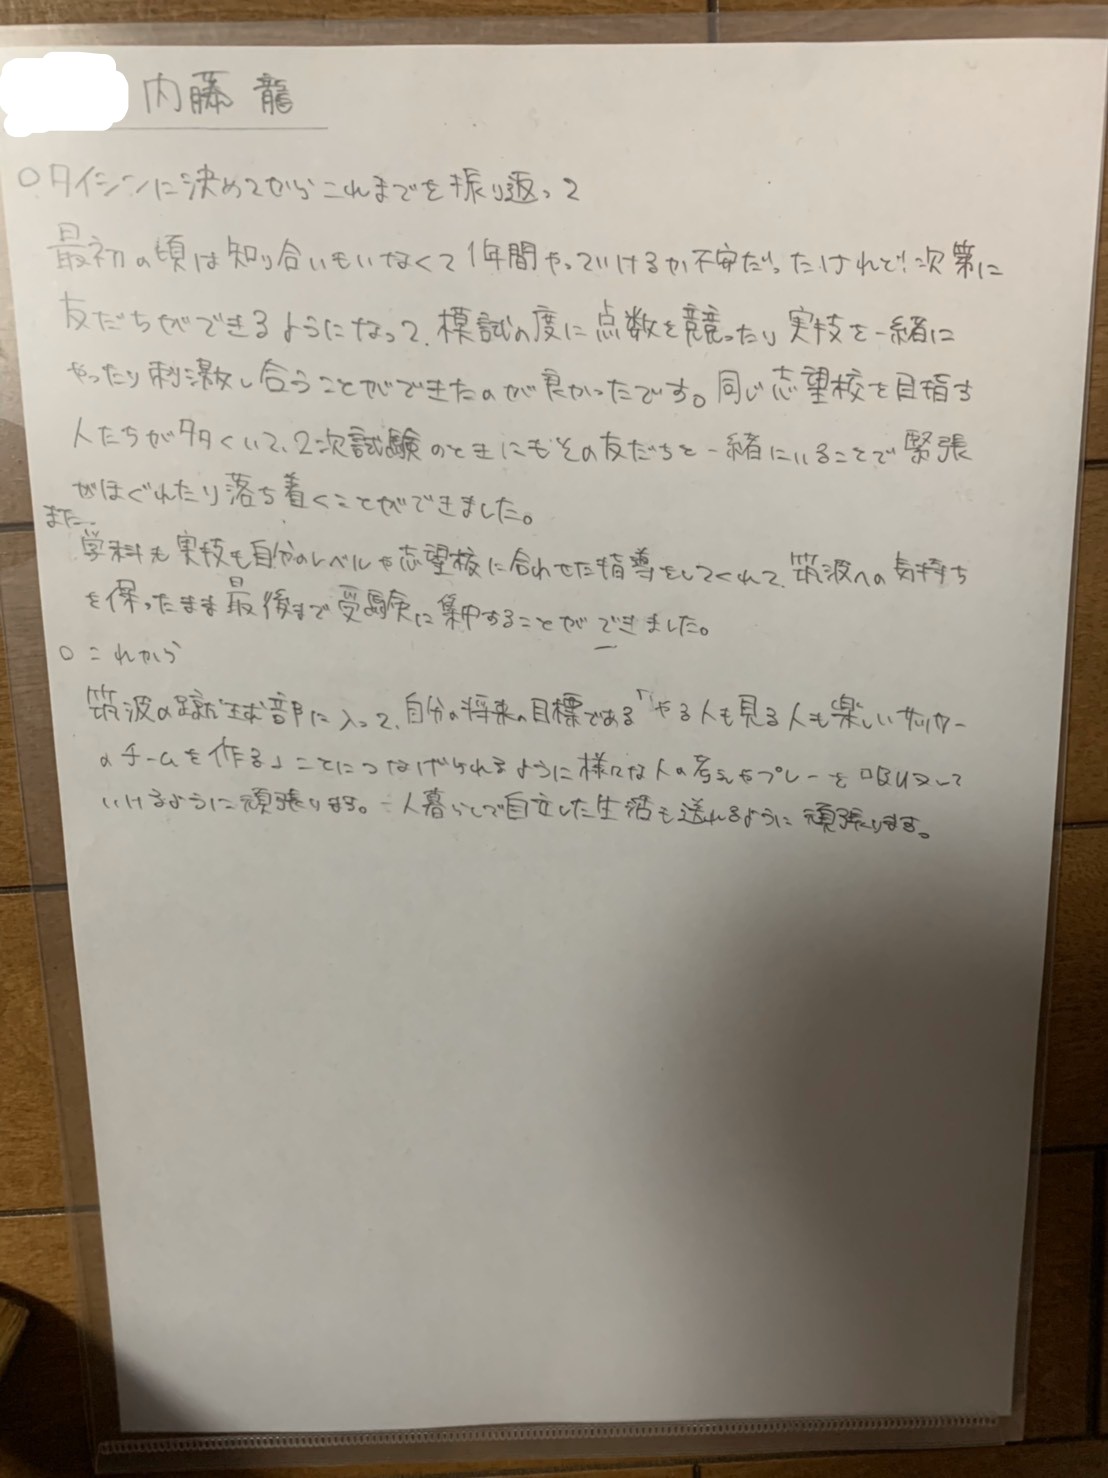 内藤 龍
○タイシンに決めてからこれまでを振り返って
最初の頃は知り合いもいなくて1年間やっていけるか不安だったけれど、次第に
友だちができるようになって、模試の度に点数を競ったり実技を一緒に
やったり刺激し合うことができたのが良かったです。同じ志望校を目指す
人たちが多くいて、2次試験のときにもその友だちと一緒にいることで緊張
がほぐれたり落ち着くことができました。
また、
学科も実技も自分のレベルや志望校に合わせた指導をしてくれて、筑波への気持ち
を保ったまま最後まで受験に集中することができました。
○これから
筑波の蹴球部に入って、自分の将来の目標である「やる人も見る人も楽しいサッカー
のチームを作る」ことにつなげられるように様々な人の考えやプレーを吸収して
いけるように頑張ります。一人暮らしで自立した生活も送れるように頑張ります。